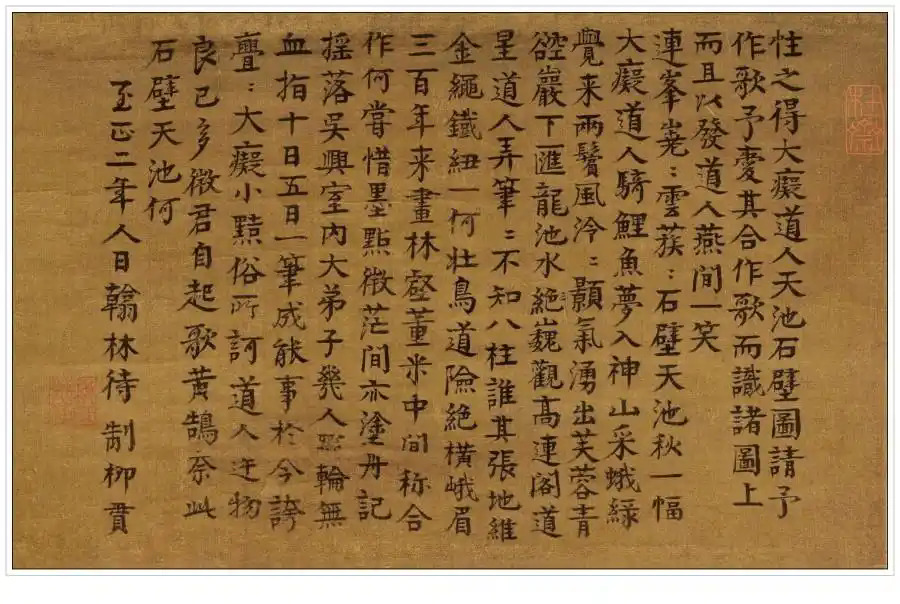 性之得大癡道人天池石壁圖請予
作歌予愛其合作歌而識諸圖上
而且以發道人燕間一笑
連峯嶤〻雲蔟〻石壁天池秋一幅
大癡道人騎鯉魚夢入神山采蛾緑
覺来兩鬢風泠〻顥氣湧出芙蓉青
硿巖下匯龍池水絶巍觀高連閣道
星道人弄筆〻不知八柱誰其張地維
金繩鐵紐一何壮鳥道險絶橫峨眉
三百年来畫林壑董米中間称合
作何嘗惜墨點微茫間亦塗丹記
摇落吳興室内大弟子幾人斵輪無
血指十日五日一筆成能事於今誇
亹〻大癡小黠俗所訶道人迕物
良已多微君自起歌黄鵠奈此
石壁天池何
至正二年人日翰林待制柳貫